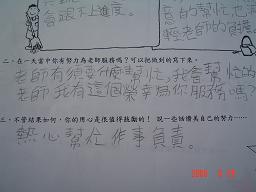 會跟不上進度。
意的幫忙也
輕老師的負擔。
二、在一天當中你有努力為老師服務嗎？可以把做到的寫下來。
老師有須要什麼幫忙,我會幫忙的
老師我有這個榮幸為你服務嗎?
三、不管結果如何，你的用心是很值得鼓勵的！說一些話讚美自己的努力……
熱心幫忙作事負責。